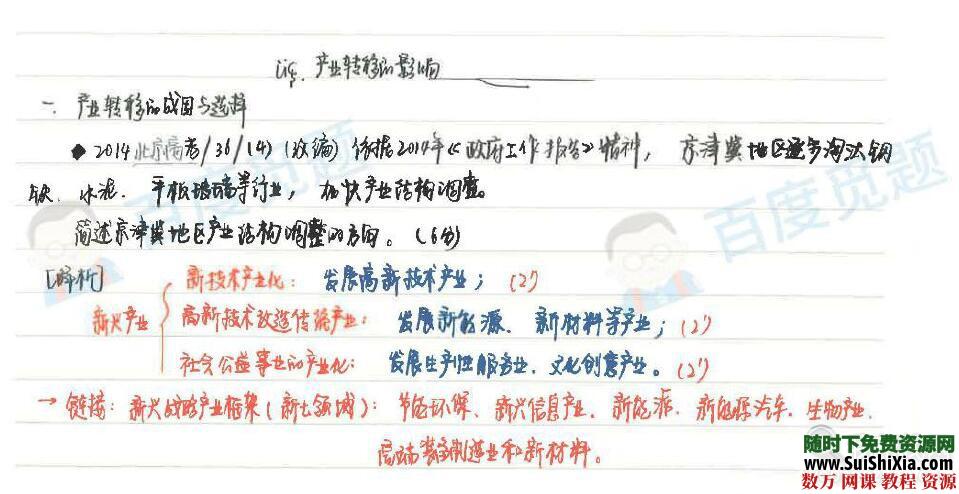 产业转移的影响
一、产业转移的成因与选择
◆2014北京高考/36/(4)(改编)依据2014年《政府工作报告》精神，京津冀地区逐步淘汰钢
铁、水泥、平板玻璃等行业，加快产业结构调整。
简述京津冀地区产业结构调整的方向。(6分)
[解析]
新兴产业
新技术产业化：发展高新技术产业；(2')
高新技术改造传统产业：发展新能源、新材料等产业；(2')
社会公益事业的产业化：发展生产性服务业、文化创意产业。(2')
→链接：新兴战略产业框架(新七领域)：节能环保、新兴信息产业、新能源、新能源汽车、生物产业、
高端装备制造业和新材料。
百度觅题
百度觅题
随时下免费资源网
www.SuiShiXia.com
数万 网课 教程 资源